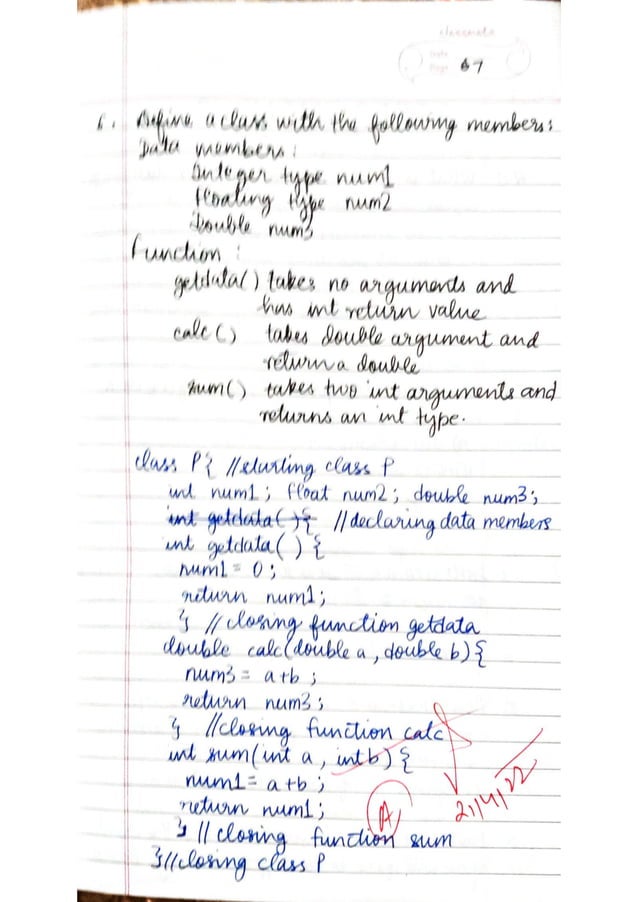 classmate
Date
Page 67
6. Define a class with the following members:
Data members:
Integer type num1
floating type num2
double num3
Function:
getdata() takes no arguments and
has int return value
calc() takes double argument and
return a double
sum() takes two int arguments and
returns an int type.
class P{ //starting class P
int num1; float num2; double num3;
int getdata(){ //declaring data members
int getdata() {
num1 = 0;
return num1;
} //closing function getdata
double calc(double a, double b){
num3 = a+b;
return num3;
} //closing function calc
int sum(int a, int b){
num1 = a+b;
return num1;
A
21/4/22
} // closing function sum
}//closing class P